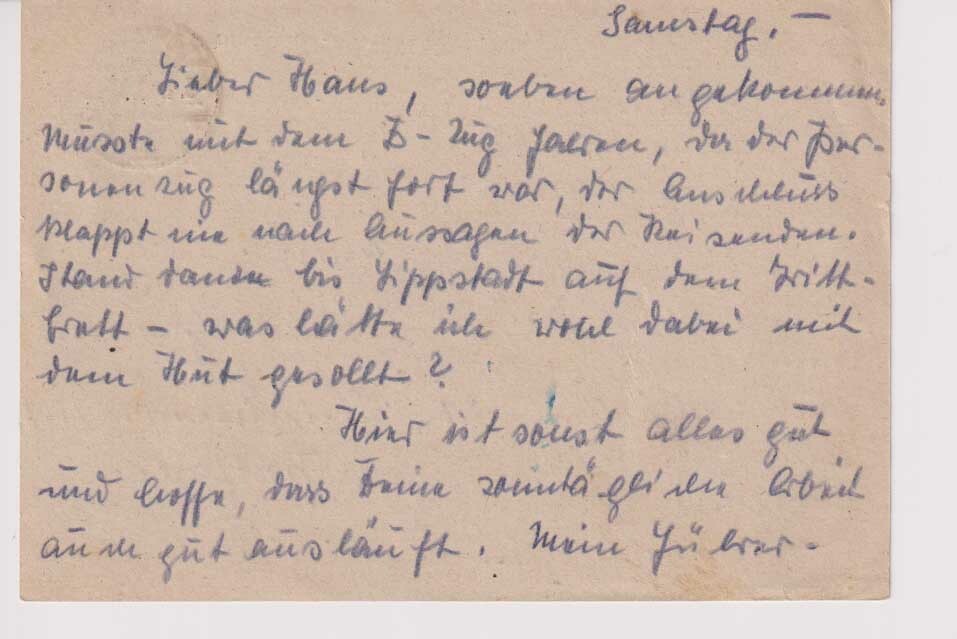 Samstag. —
Lieber Hans, soeben angekommen.
Musste mit dem D-Zug fahren, da der Per-
sonenzug längst fort war, der Anschluss
klappt nie nach Aussagen der Reisenden.
Stand dann bis Lippstadt auf dem Tritt-
brett – was hätte ich wohl dabei mit
dem Hut gesollt?
Hier ist sonst alles gut
und hoffe, dass Deine sonntägliche Arbeit
auch gut ausläuft. Mein Führer-